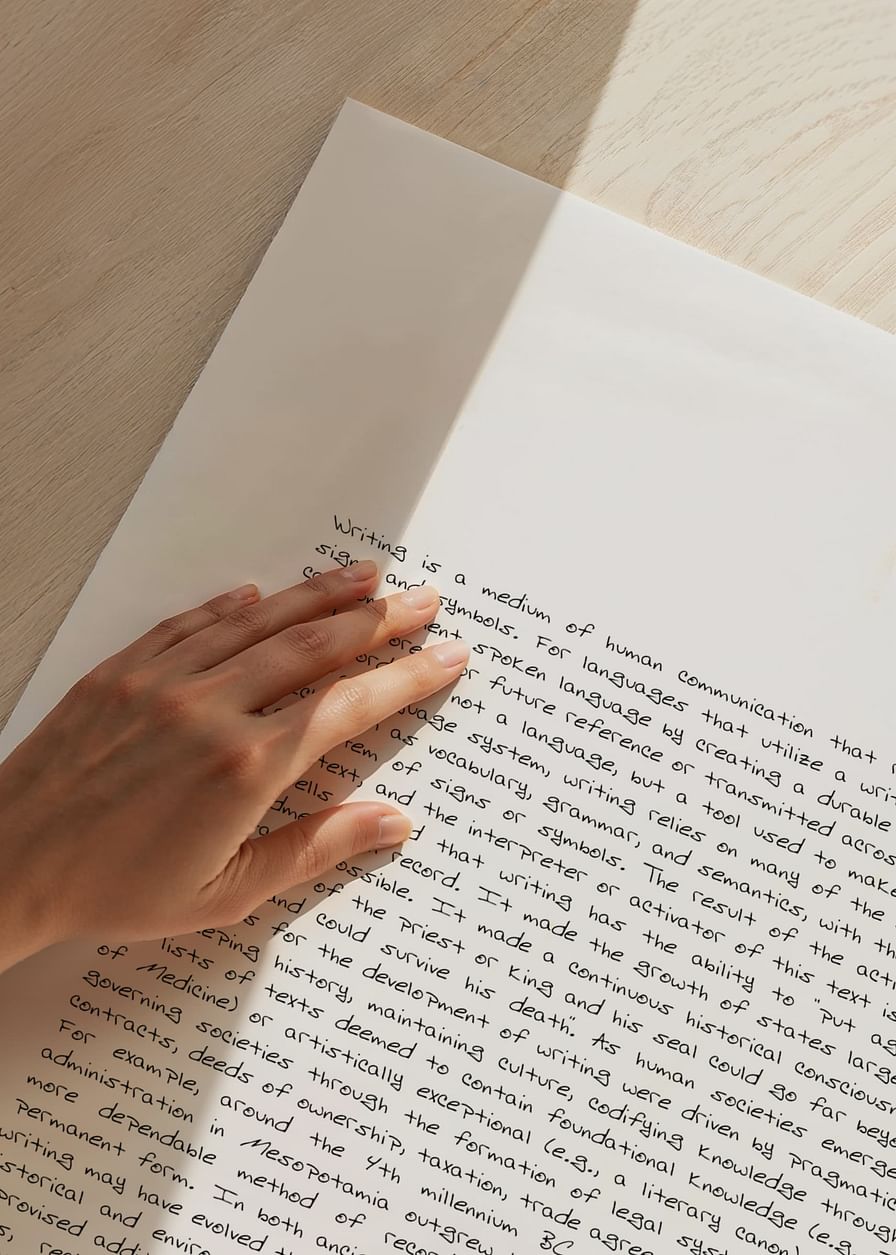 Writing is a medium of human communication that
signs and symbols. For languages that utilize a
spoken language by creating a durable
or future reference or transmitted
not a language, but a tool used to make
system, writing relies on many of the
as vocabulary, grammar, and semantics, with
of signs or symbols. The result of the
text, and the interpreter or activator of this text
that writing has the ability to "put
record. It made the growth of states
possible. It made a continuous historical
and of the priest or king and his seal could go far
could survive his death". As human societies
for the development of writing were driven by
history, maintaining culture, codifying knowledge
lists of texts deemed to contain foundational knowledge (e.g.
of Medicine) or artistically exceptional (e.g., a literary canon
governing societies through the formation of legal
contracts, deeds of ownership, taxation, trade
For example, around the 4th millennium BC
administration in Mesopotamia outgrew
more dependable method of
permanent form. In both
writing may have evolved
and